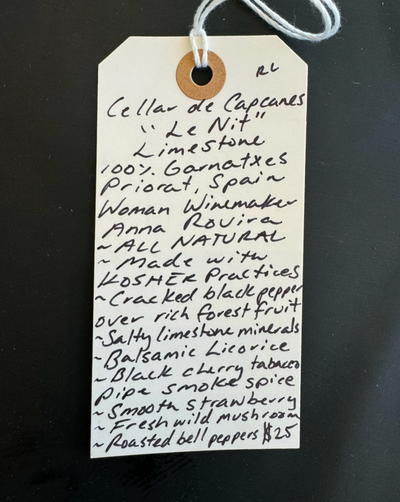 RL
Cellar de Capcanes
"Le Nit"
Limestone
100% Garnatxes
Priorat, Spain
Woman Winemaker
Anna Rovira
~ALL NATURAL
~Made with
KOSHER Practices
~Cracked black pepper
over rich forest fruit
~Salty limestone minerals
~Balsamic Licorice
~Black cherry tabacco
Pipe smoke spice
~Smooth strawberry
~Fresh wild mushroom
~Roasted bell peppers $25